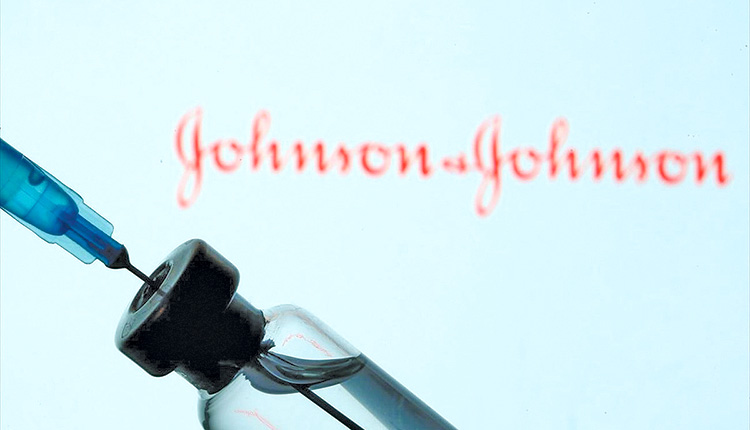 Johnson & Johnson